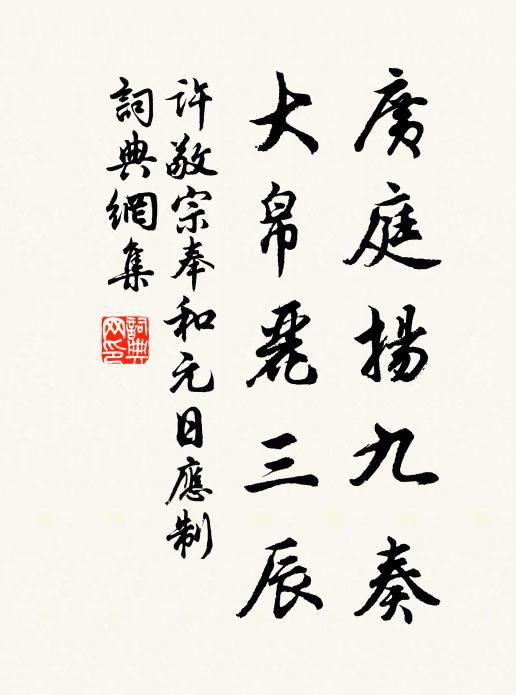 廣庭揚九奏
大帛麗三辰
許敬宗奉和元日應制
詞典網集
詞典网印